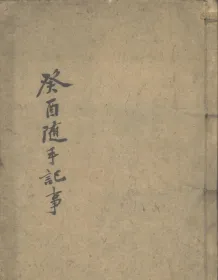 癸酉随手記事